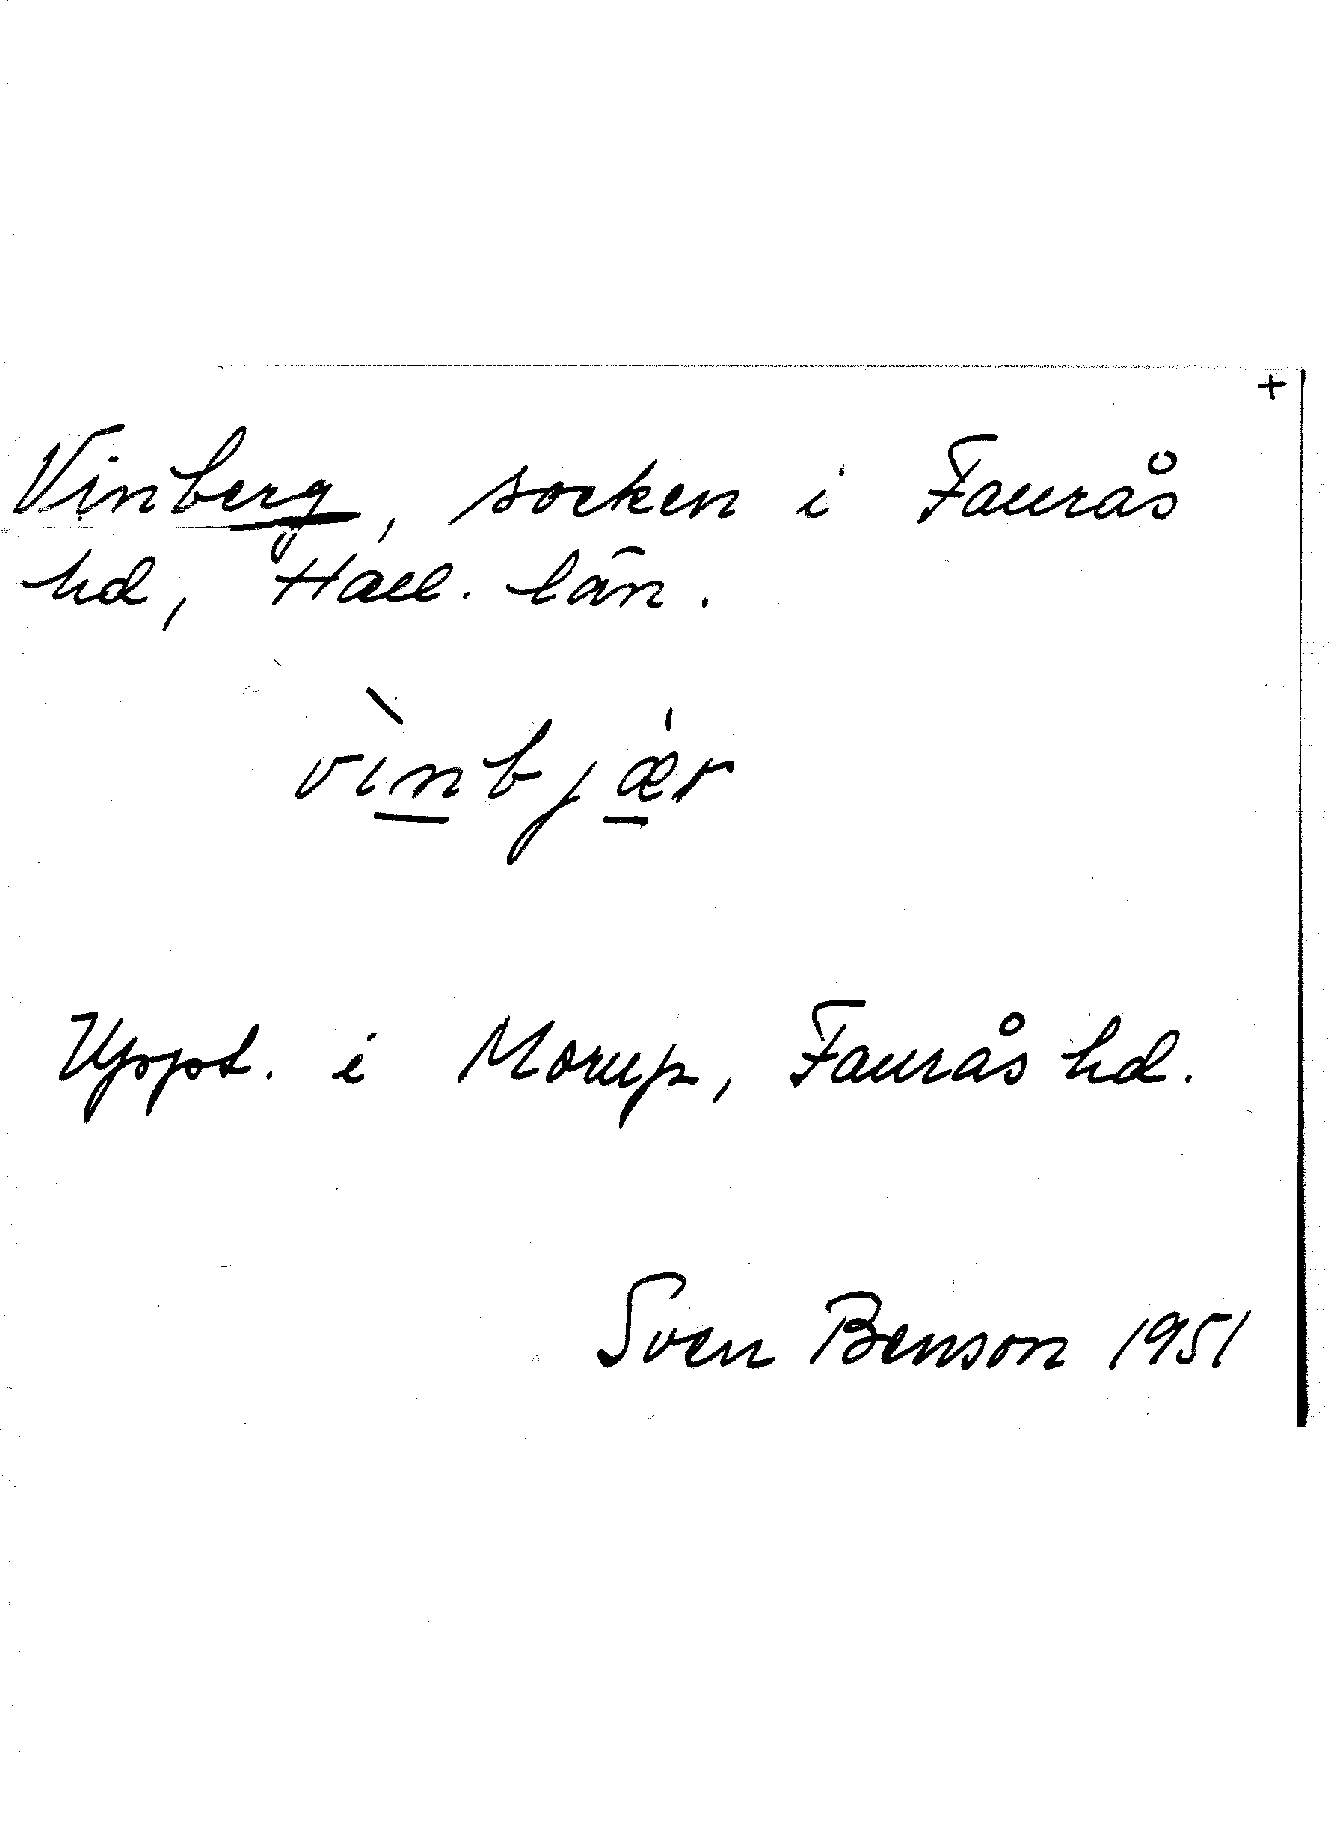 +
Vinberg, socken i Faurås
hd, Hall. län.
vìnbjær
Uppt. i Morup, Faurås hd.
Sven Benson 1951